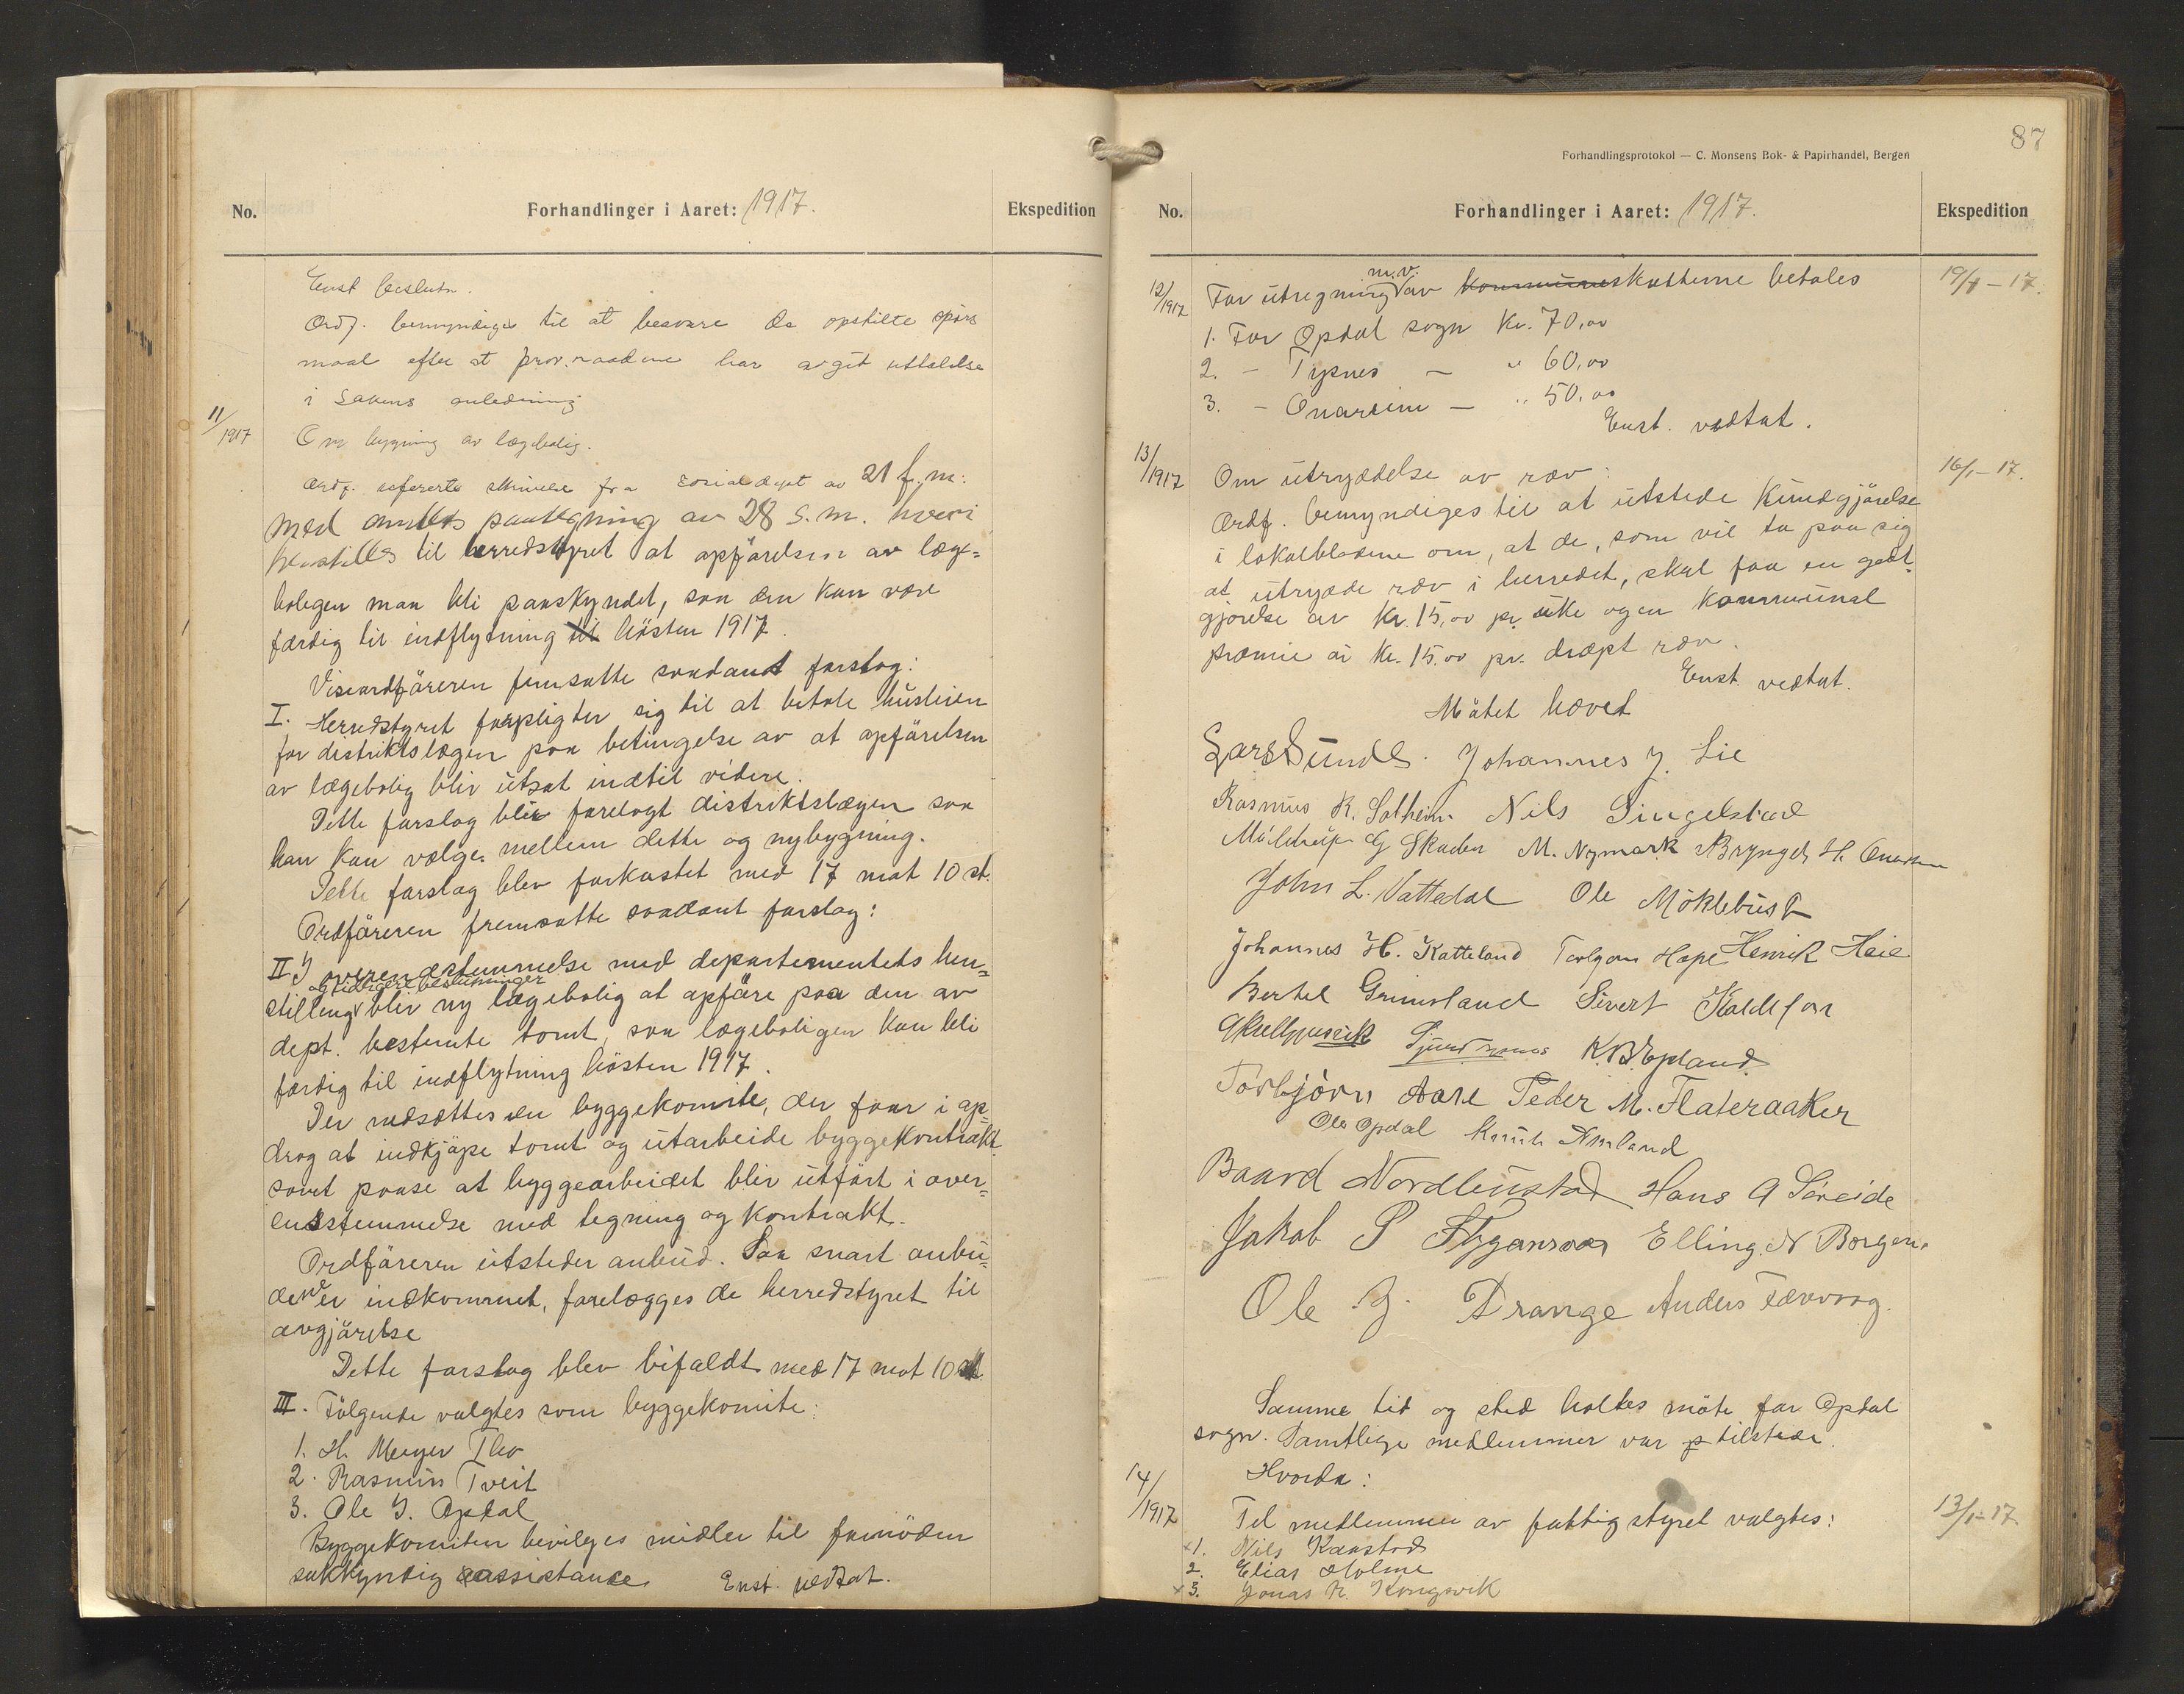 No.
Forhandlinger i Aaret: 1917.
Ekspedition
Enst beslutn.
Ordf. bemyndiges til at besvare de opstilte spørs
maal efter at prov.raadene har avgit uttalelse
i sakens anledning
11/1917
Om bygning av lægebolig.
Ordf. refererte skrivelse fra socialdept av 21 f. m.
med amtets paategning av 28 s. m. hvori
henstilles til herredstyret at opførelsen av læge=
boligen maa bli paaskyndet, saa den kan være
færdig til indflytning til høsten 1917.
Viseordføreren fremsatte saadant forslag:
I. Herredstyret forpligter sig til at betale husleien
for distriktslægen paa betingelse av at opførelsen
av lægebolig blir utsat indtil videre.
Dette forslag blir forelagt distriktslægen saa
han kan vælge mellem dette og nybygning.
Dette forslag blev forkastet med 17 mot 10 st.
Ordføreren fremsatte saadant forslag:
II I overensstemmelse med departementets hen=
og tidligere beslutninger
stilling blir ny lægebolig at opføre paa den av
dept. bestemte tomt, saa lægeboligen kan bli
færdig til indflytning høsten 1917.
Der nedsættes en byggekomite, der faar i op=
drag at indkjøpe tomt og utarbeide byggekontrakt
samt paase at byggearbeidet blir utført i over=
ensstemmelse med tegning og kontrakt.
Ordføreren utsteder anbud. Saa snart anbu=
dene er indkommet, forelægges de herredstyret til
avgjørelse
Dette forslag blev bifaldt med 17 mot 10 st
III. Følgende valgtes som byggekomite:
1. H. Meyer Thv
2. Rasmus Tveit
3. Ole J. Opdal
Byggekomiteen bevilges midler til fornøden
sakkyndig assistance. Enst. vedtat.
87
Forhandlingsprotokol — C. Monsens Bok- & Papirhandel, Bergen
No.
Forhandlinger i Aaret: 1917.
Ekspedition
12/1917
m. v.
For utregning av kommuneskatterne betales
19/1 - 17.
1. For Opdal sogn kr. 70,00
2. - Tysnes - " 60,00
3. - Onareim - " 50,00
Enst. vedtat.
13/1917
Om utryddelse av ræv:
16/1 - 17.
Ordf. bemyndiges til at utstede kundgjørelse
i lokalbladene om, at de, som vil ta paa sig
at utrydde ræv i herredet, skal faa en godt=
gjørelse av kr. 15,00 pr. uke og en kommunal
præmie av kr. 15.00 pr. dræpt ræv.
Enst. vedtat.
Møtet hævet
Lars Sunde. Johannes J. Lie
Rasmus K. Solheim Nils Singelstad
G Skaden M. Nymark Bryngel H. Onarheim
John L. Vattedal Ole Møklebust
Johannes H. Katteland Torlgom Hope Henrik Heie
Bertel Grimsland Sivert Kaldefoss
K. B. Epland
Torbjørn Aase Peder M. Flateraaker
Ole Opdal Knut Amland
Baard Nordbustad Hans A Søreide
Jakob P Elling N Borgen.
Ole J. Drange Anders Færvaag.
Samme tid og sted holtes møte for Opdal
sogn. Samtlige medlemmer var tilstede.
Hvorda:
14/1917
Til medlemmer av fattigstyret valgtes:
13/1-17
x1. Nils Kaastad
2. Elias Holme
x3. Jonas N. Kongsvik